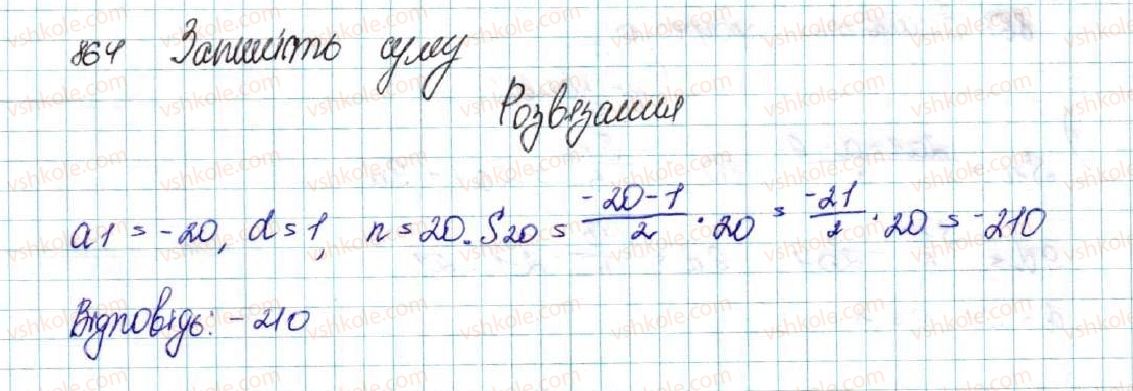 864 Запишіть суму
Розв'язання
a1 = -20, d = 1, n = 20. S20 = \frac{-20-1}{2} · 20 = \frac{-21}{2} · 20 = -210
Відповідь: -210